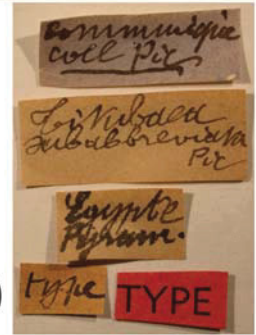 communiqué
coll Pic
subabbreviata
Pic
Egypte
Pyram.
type
TYPE